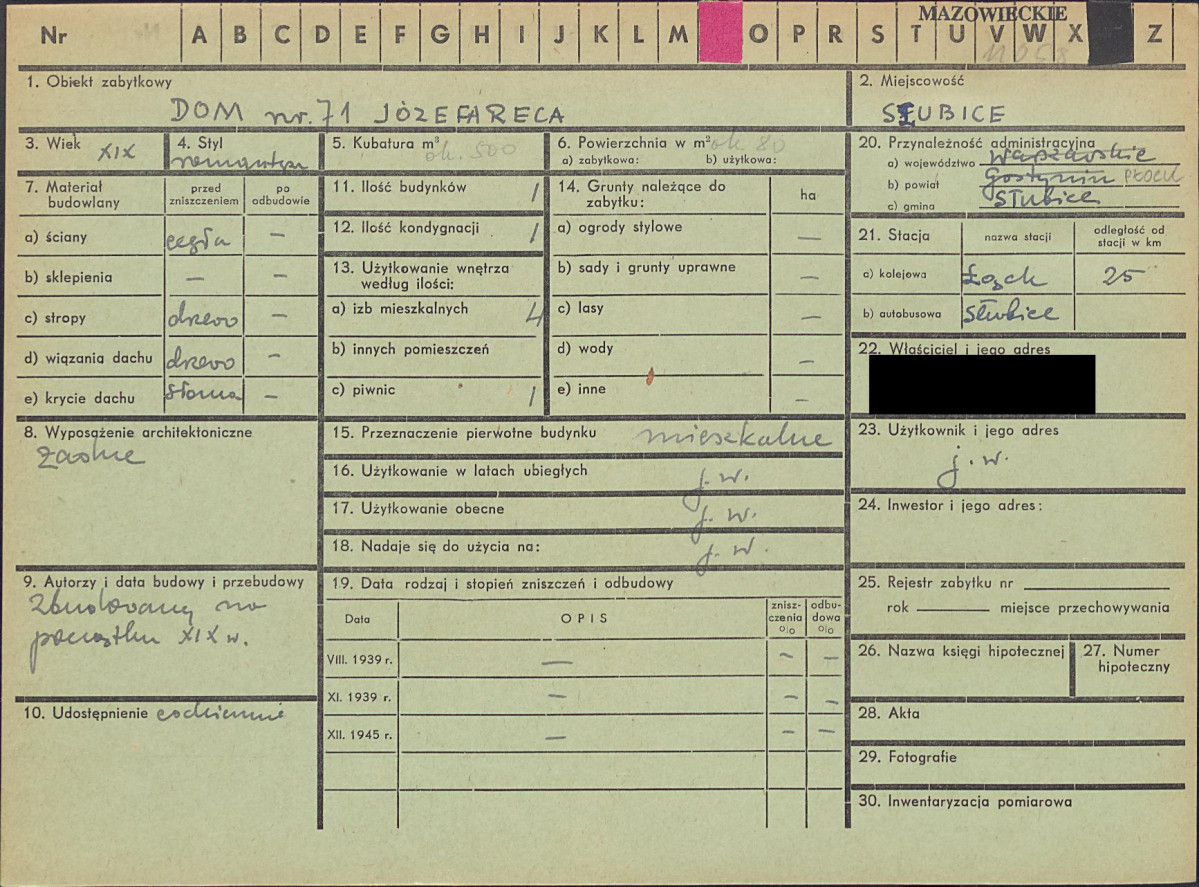 MAZOWIECKIE
Nr A B C D E F G H I J K L M O P R S T U V W X Z
1. Obiekt zabytkowy
DOM nr. 71 JÓZEFA RECA
2. Miejscowość
SŁUBICE
3. Wiek XIX
4. Styl
5. Kubatura m³ ok. 500
6. Powierzchnia w m² ok 80
a) zabytkowa: b) użytkowa:
7. Materiał budowlany
przed zniszczeniem
po odbudowie
a) ściany cegła —
b) sklepienia — —
c) stropy drzewo —
d) wiązania dachu drzewo —
e) krycie dachu słoma —
8. Wyposażenie architektoniczne
żadne
9. Autorzy i data budowy i przebudowy
Zbudowany na
początku XIX w.
10. Udostępnienie codziennie
11. Ilość budynków 1
12. Ilość kondygnacji 1
13. Użytkowanie wnętrza
według ilości:
a) izb mieszkalnych 4
b) innych pomieszczeń
c) piwnic 1
14. Grunty należące do
zabytku:
ha
a) ogrody stylowe —
b) sady i grunty uprawne —
c) lasy —
d) wody —
e) inne —
15. Przeznaczenie pierwotne budynku mieszkalne
16. Użytkowanie w latach ubiegłych j. w.
17. Użytkowanie obecne j. w.
18. Nadaje się do użycia na: j. w.
19. Data rodzaj i stopień zniszczeń i odbudowy
Data OPIS
znisz-
czenia
o/o
odbu-
dowa
o/o
VIII. 1939 r. — — —
XI. 1939 r. — — —
XII. 1945 r. — — —
20. Przynależność administracyjna
a) województwo Warszawskie
b) powiat Gostynin PŁOCK
c) gmina Słubice
21. Stacja
nazwa stacji
odległość od
stacji w km
a) kolejowa Łąck 25
b) autobusowa Słubice
22. Właściciel i jego adres
23. Użytkownik i jego adres
j. w.
24. Inwestor i jego adres:
25. Rejestr zabytku nr
rok miejsce przechowywania
26. Nazwa księgi hipotecznej
27. Numer
hipoteczny
28. Akta
29. Fotografie
30. Inwentaryzacja pomiarowa